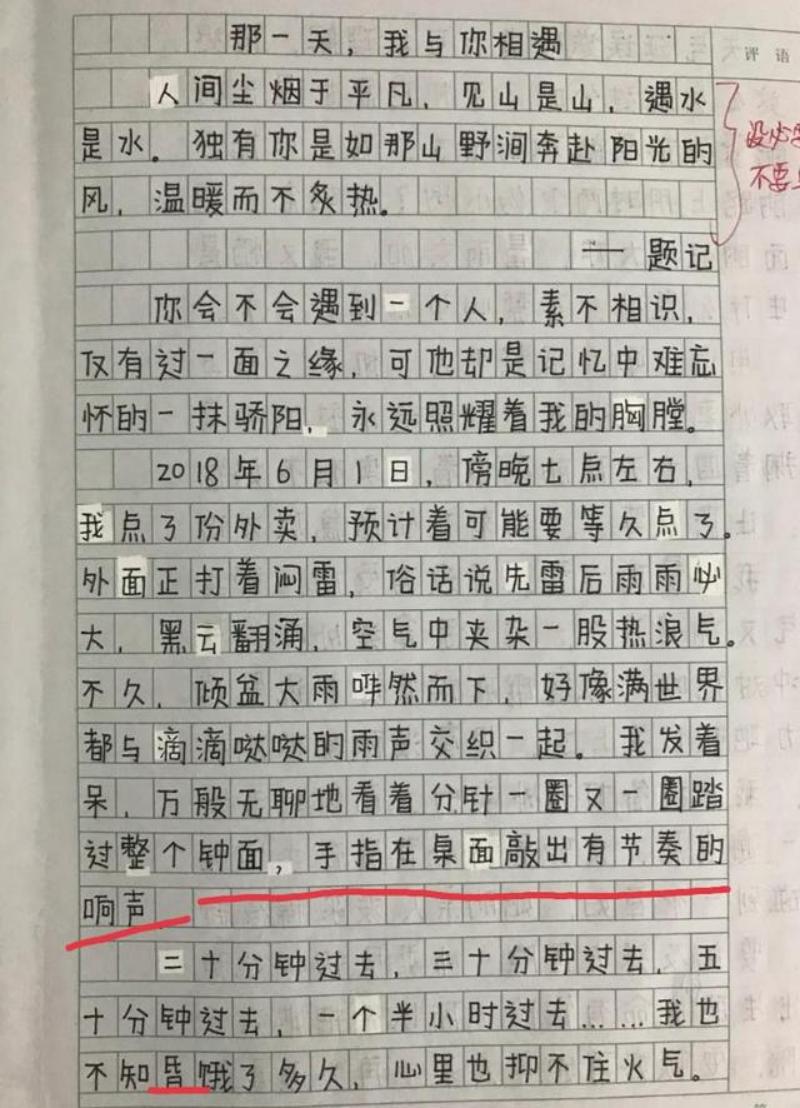 那一天，我与你相遇
评语
人间尘烟于平凡，见山是山，遇水
是水。独有你是如那山野涧奔赴阳光的
风，温暖而不炙热。
——题记
你会不会遇到一个人，素不相识，
仅有过一面之缘，可他却是记忆中难忘
怀的一抹骄阳，永远照耀着我的胸膛。
2018年6月1日，傍晚七点左右，
我点了份外卖，预计着可能要等久点了。
外面正打着闷雷，俗话说先雷后雨雨必
大，黑云翻涌，空气中夹杂一股热浪气。
不久，倾盆大雨哗然而下，好像满世界
都与滴滴哒哒的雨声交织一起。我发着
呆，万般无聊地看着分针一圈又一圈踏
过整个钟面，手指在桌面敲出有节奏的
响声
二十分钟过去，三十分钟过去，五
十分钟过去，一个半小时过去……我也
不知昏饿了多久，心里也抑不住火气。
没必要
不要